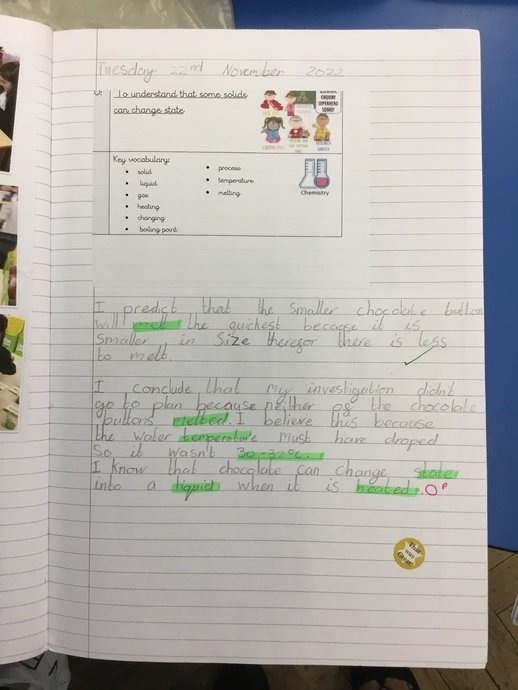 Tuesday 22nd November 2022
To understand that some solids
can change state
ENQUIRY
SUPERHERO
SQUAD
Key vocabulary:
• solid
• liquid
• gas
• heating
• changing
• boiling point
• process
• temperature
• melting
Chemistry
I predict that the smaller chocolate button
will melt the quickest because it is
smaller in size therefor there is less
to melt.
I conclude that my investigation didn't
go to plan because neither of the chocolate
buttons melted. I believe this because
the water temperature must have droped
So it wasn't 30-32°c.
I know that chocolate can change state
into a liquid when it is heated.
That
was
Great!